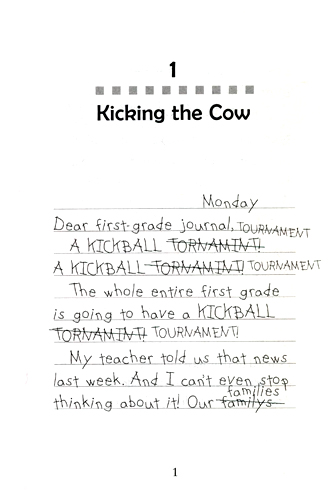 1
Kicking the Cow
Monday
Dear first-grade journal,
A KICKBALL TORNAMINT! TOURNAMENT
A KICKBALL TORNAMINT! TOURNAMENT
The whole entire first grade
is going to have a KICKBALL
TORNAMINT! TOURNAMENT!
My teacher told us that news
last week. And I can't even stop
thinking about it! Our familys families
1